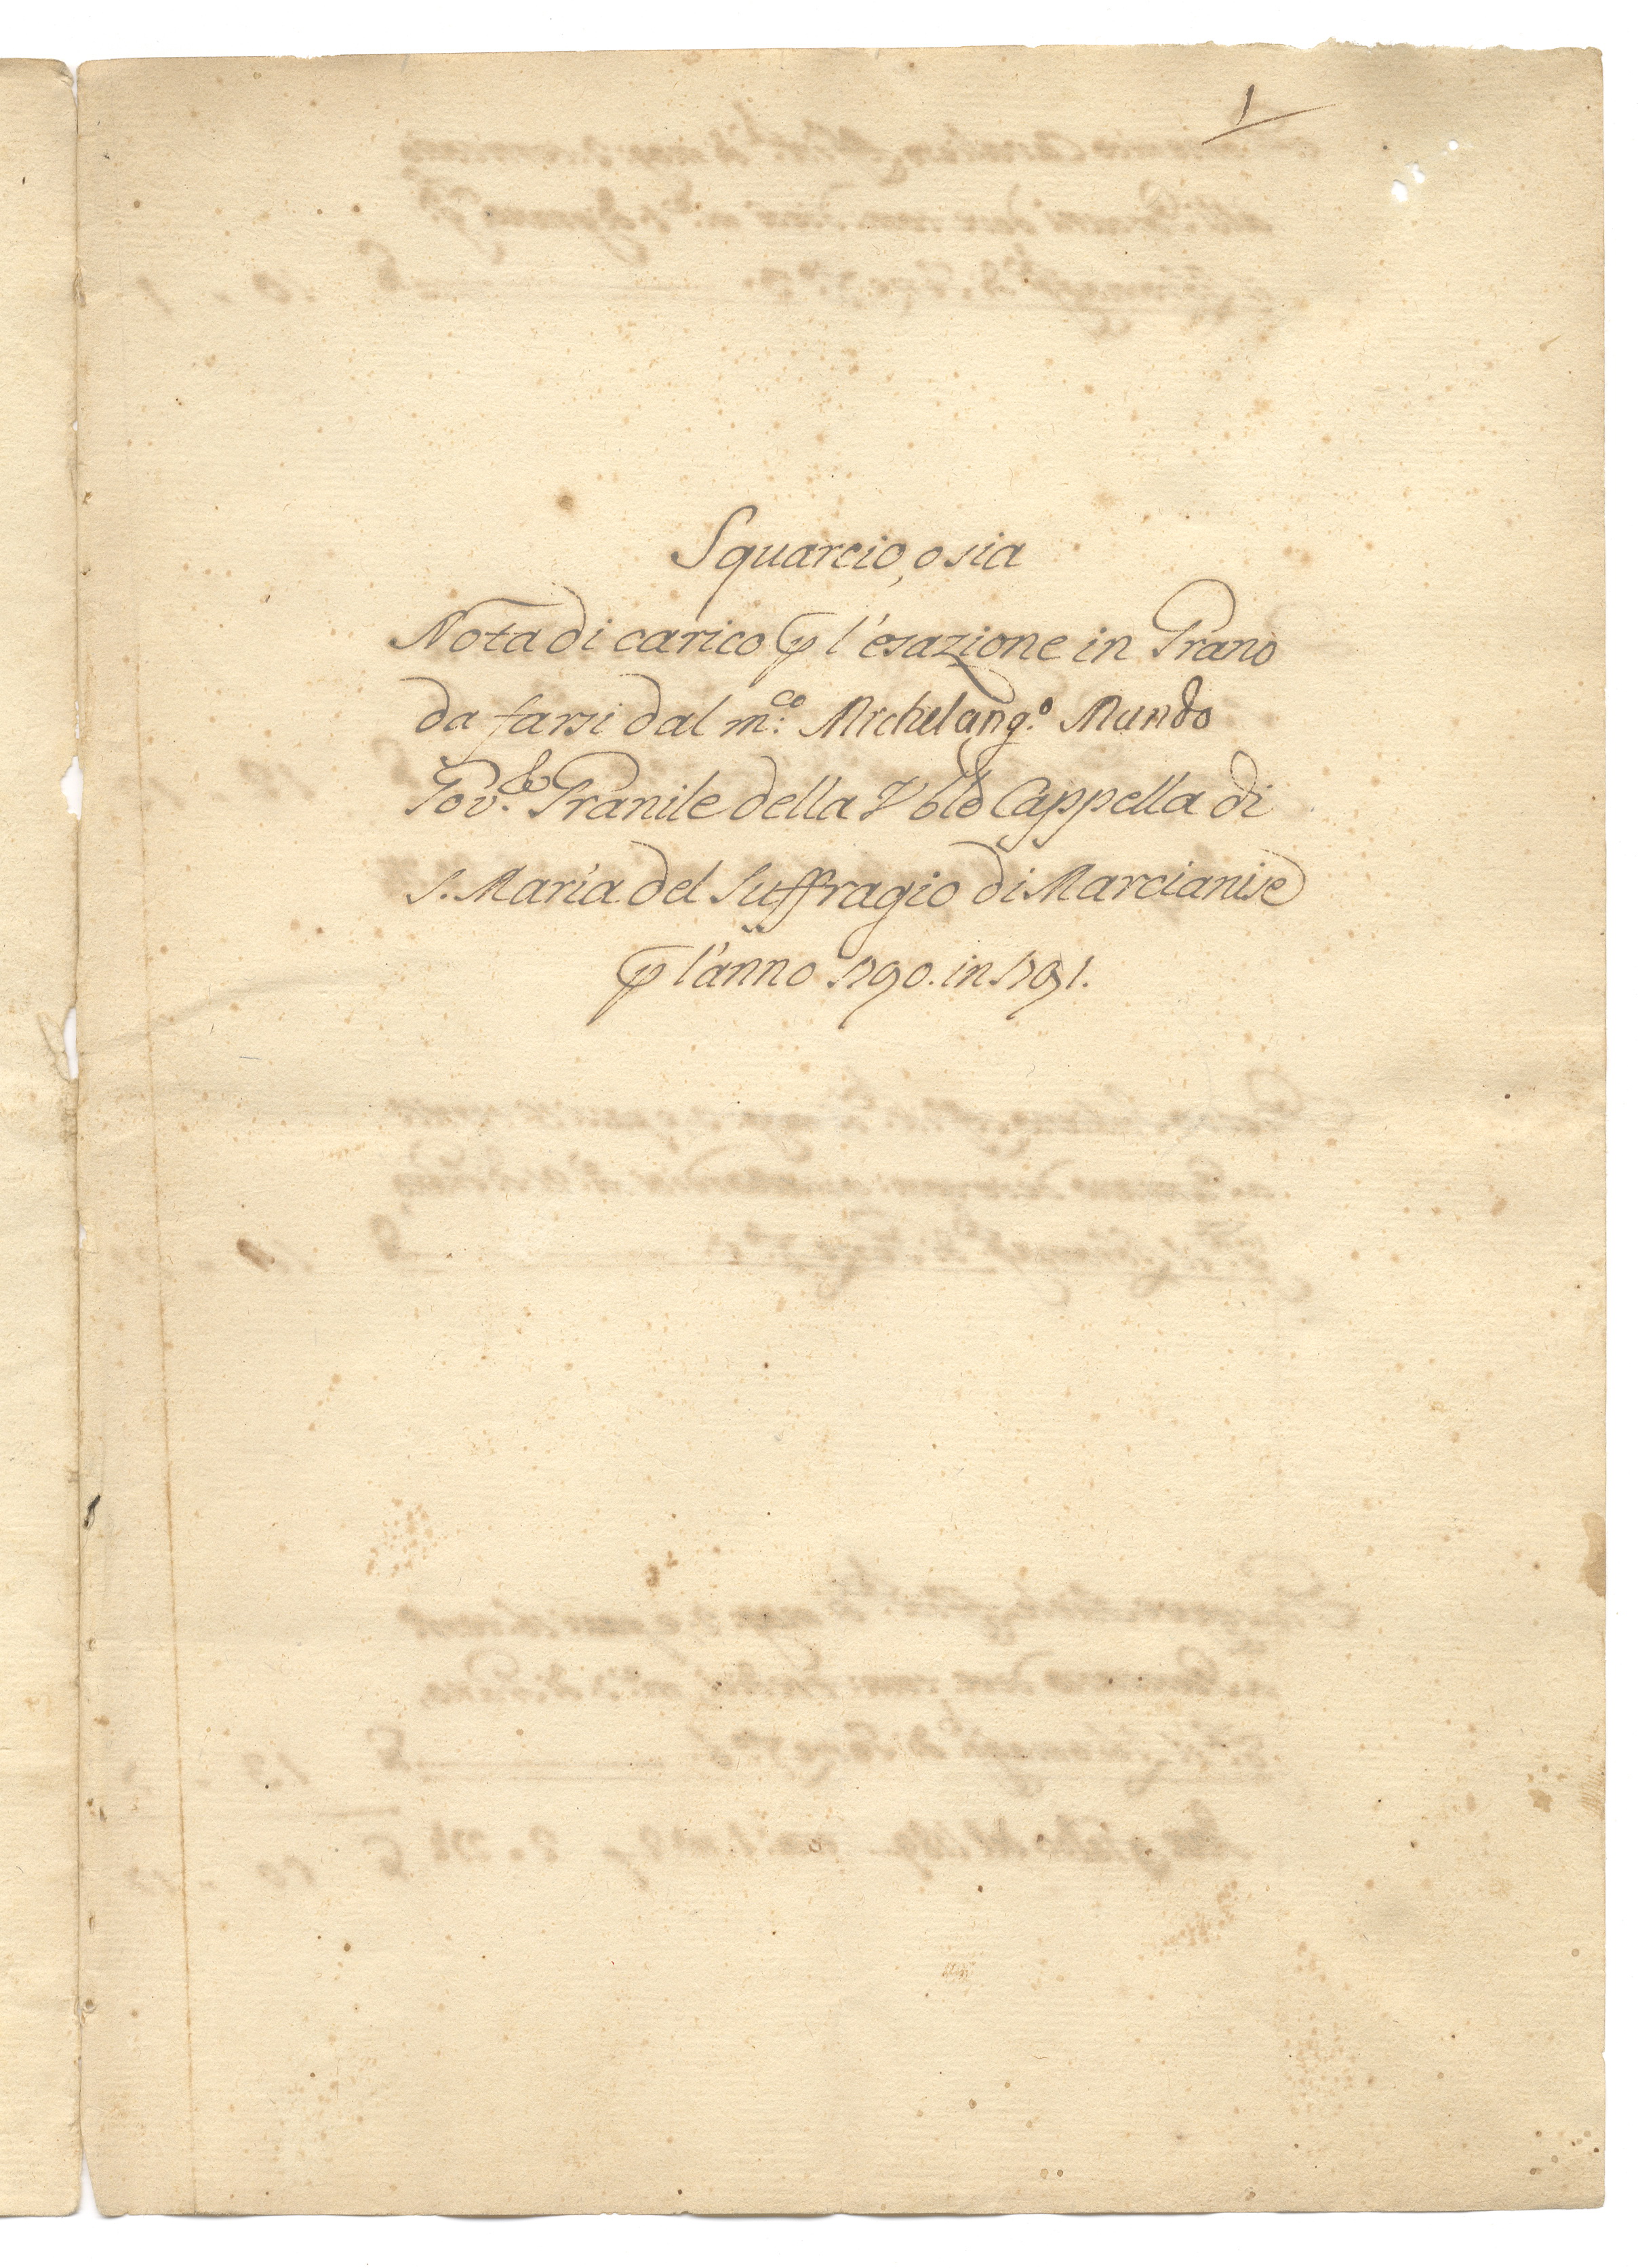 1
Squarcio, o sia
Nota di carico p l'esazione in Grano
da farsi dal m.co Michelang.o Mundo
Gov.e Granile della V ble Cappella di
S. Maria del Suffragio di Marcianise
p l'anno 1790. in 1791.